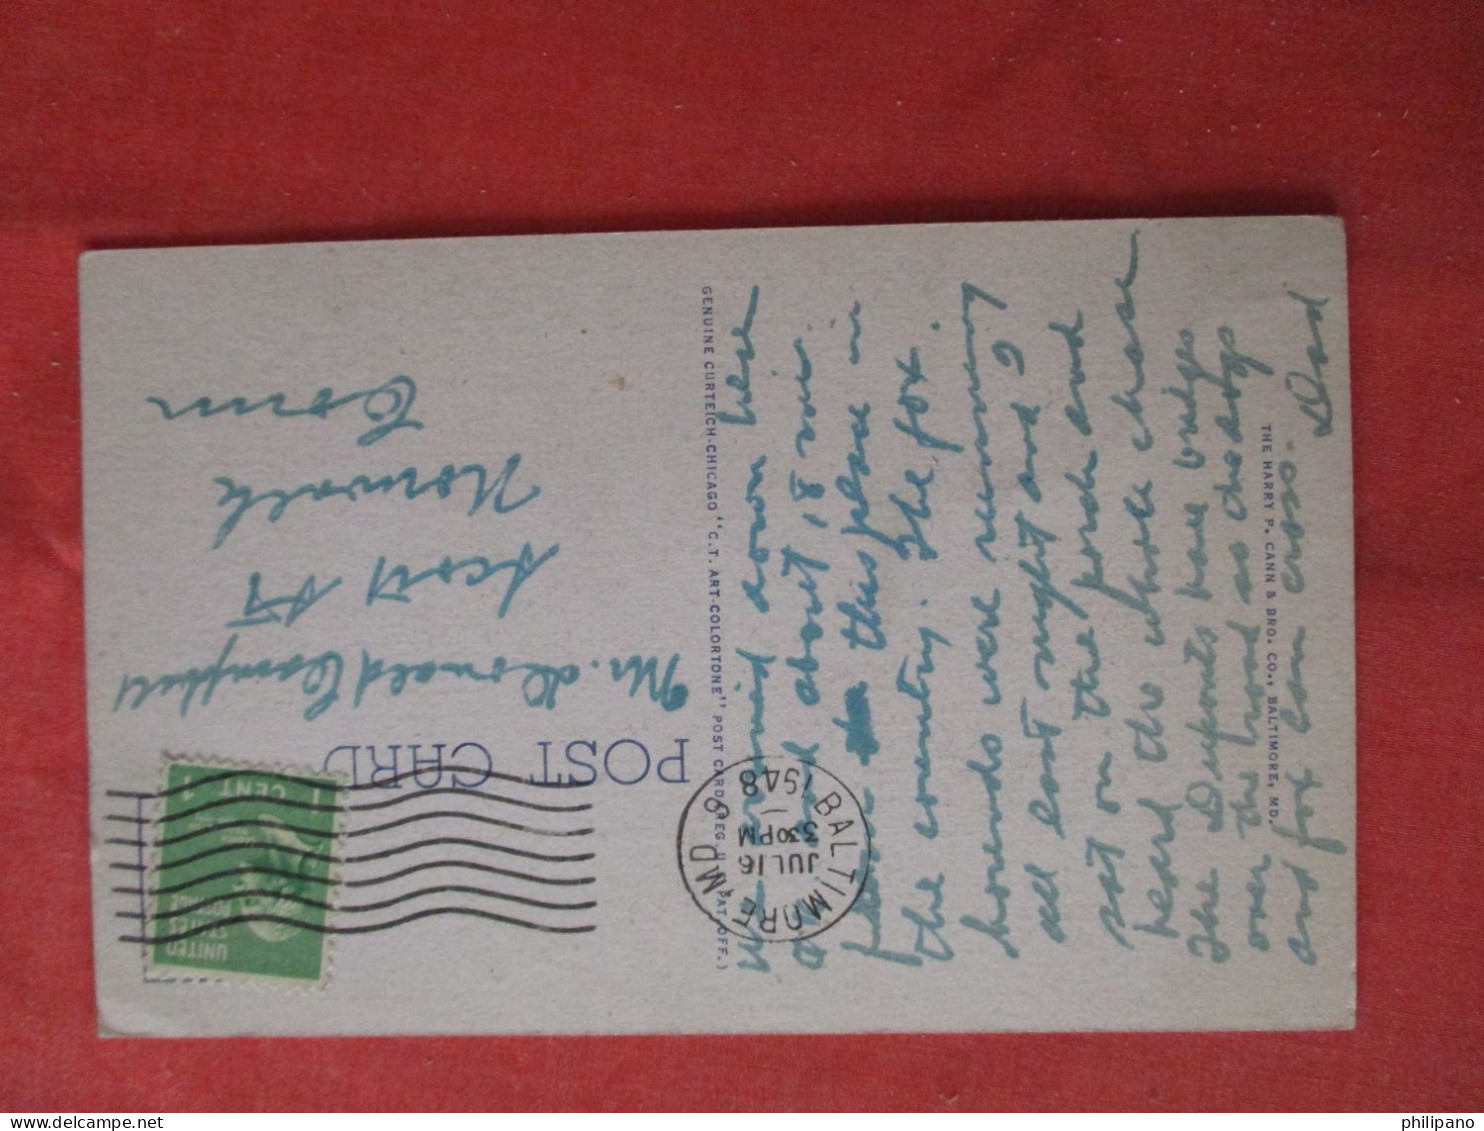 POST CARD
UNITED
STATES
POSTAGE
1 CENT 1
BALTIMORE, MD. 8
JUL 16
330 PM
1948
Mr. Donald Campbell
Scott St
Norwalk
Conn
GENUINE CURTEICH-CHICAGO "C.T. ART-COLORTONE" POST CARD (REG. U.S. PAT. OFF.)
We arrived down here
about 18 min
this place in
the country. The fox
hounds were running
all last night and I
sat on the porch and
heard the whole chase
The Duponts have bridges
over the road so the dogs
and fox can cross.
Dad
THE HARRY P. CANN & BRO. CO., BALTIMORE, MD.
philipano